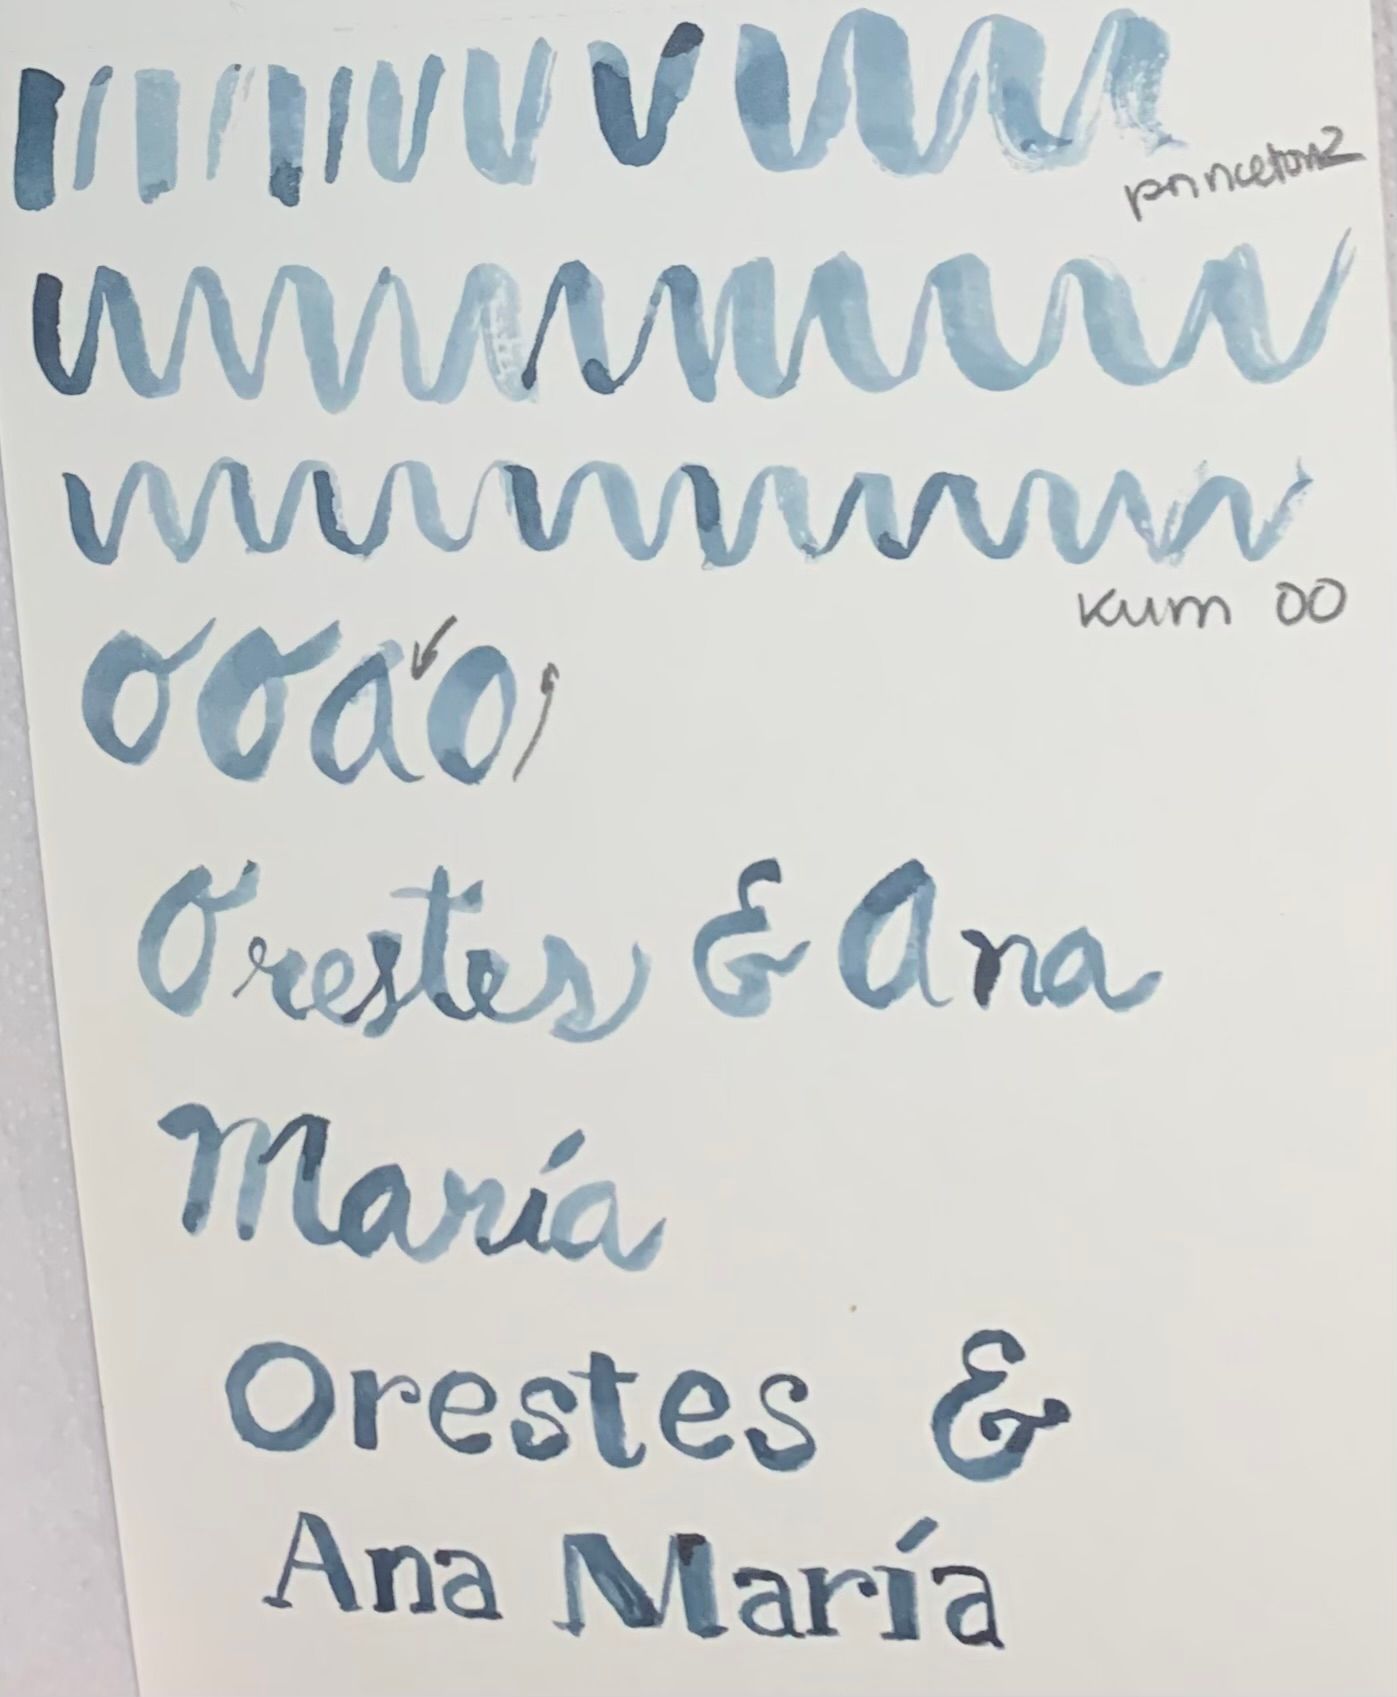 princeton 2
Kum 00
O O a O
Orestes & Ana
María
Orestes &
Ana María